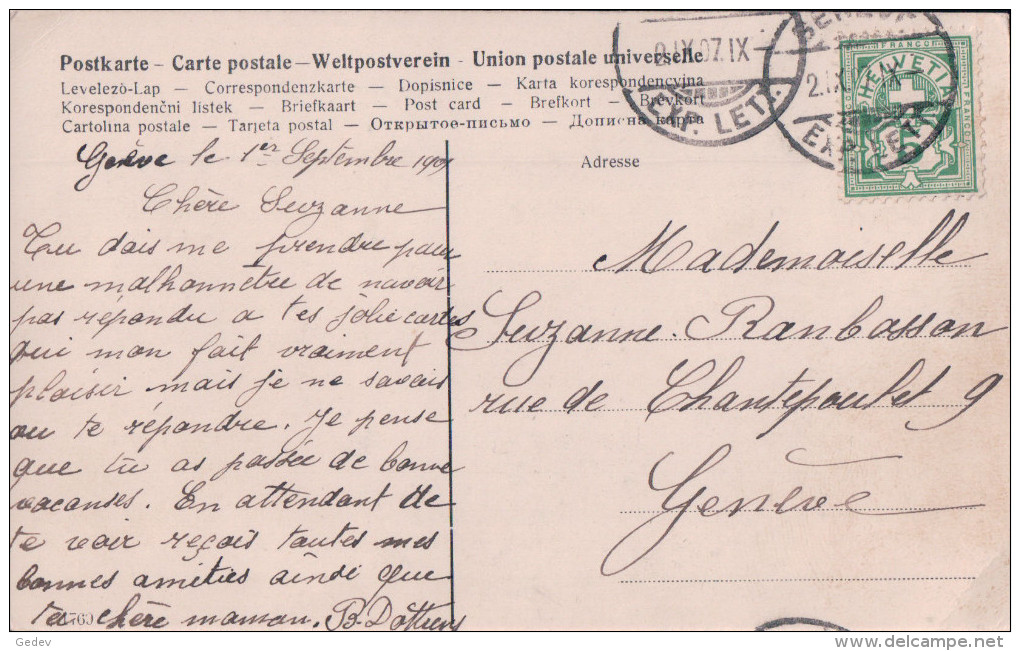 Postkarte – Carte postale – Weltpostverein – Union postale universelle
Levelezö-Lap — Correspondenzkarte — Dopisnice — Karta korespondencyjna
Korespondenční listek — Briefkaart — Post card — Brefkort — Brevkort
Cartolina postale — Tarjeta postal — Открытое-письмо — Дописна карта
Genève le 1er Septembre 190
Adresse
Chère Suzanne
Tu dois me prendre pour
une malhonnêtre de navoir
pas répondu a tes jolie cartes
qui mon fait vraiment
plaisir mais je ne savais
ou te répondre. Je pense
que tu as passée de bonne
vacanses. En attendant de
te voir reçois toutes mes
bonnes amitiés ainsi que
ta chère maman. B.
Mademoiselle
Suzanne Ranbosson
rue de Chantepoulet 9
Genève
IX.07.IX
EXP. LETT.
GENEVE
2.IX
EXP. LETT.
FRANCO
HELVETIA
FRANCO
5
769
Gedev
delcampe.net